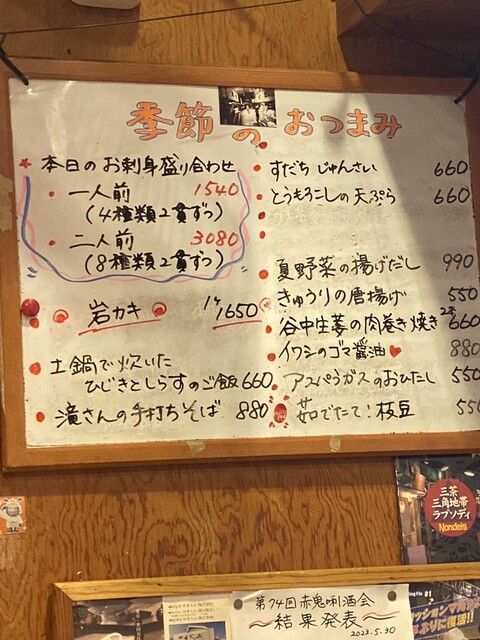 季節のおつまみ
本日のお刺身盛り合わせ
一人前 1540
(4種類2貫ずつ)
二人前 3080
(8種類2貫ずつ)
岩カキ 1ヶ1650
土鍋で炊いた
ひじきとしらすのご飯 660
滝さんの手打ちそば 880
すだちじゅんさい 660
とうもろこしの天ぷら 660
夏野菜の揚げだし 990
きゅうりの唐揚げ 550
谷中生姜の肉巻き焼き 2本 660
イワシのゴマ醤油 880
アスパラガスのおひたし 550
茹でたて!枝豆 550
三茶
三角地帯
ラプソディ
Nandels
第74回赤鬼唎酒会
結果発表
2023.5.30